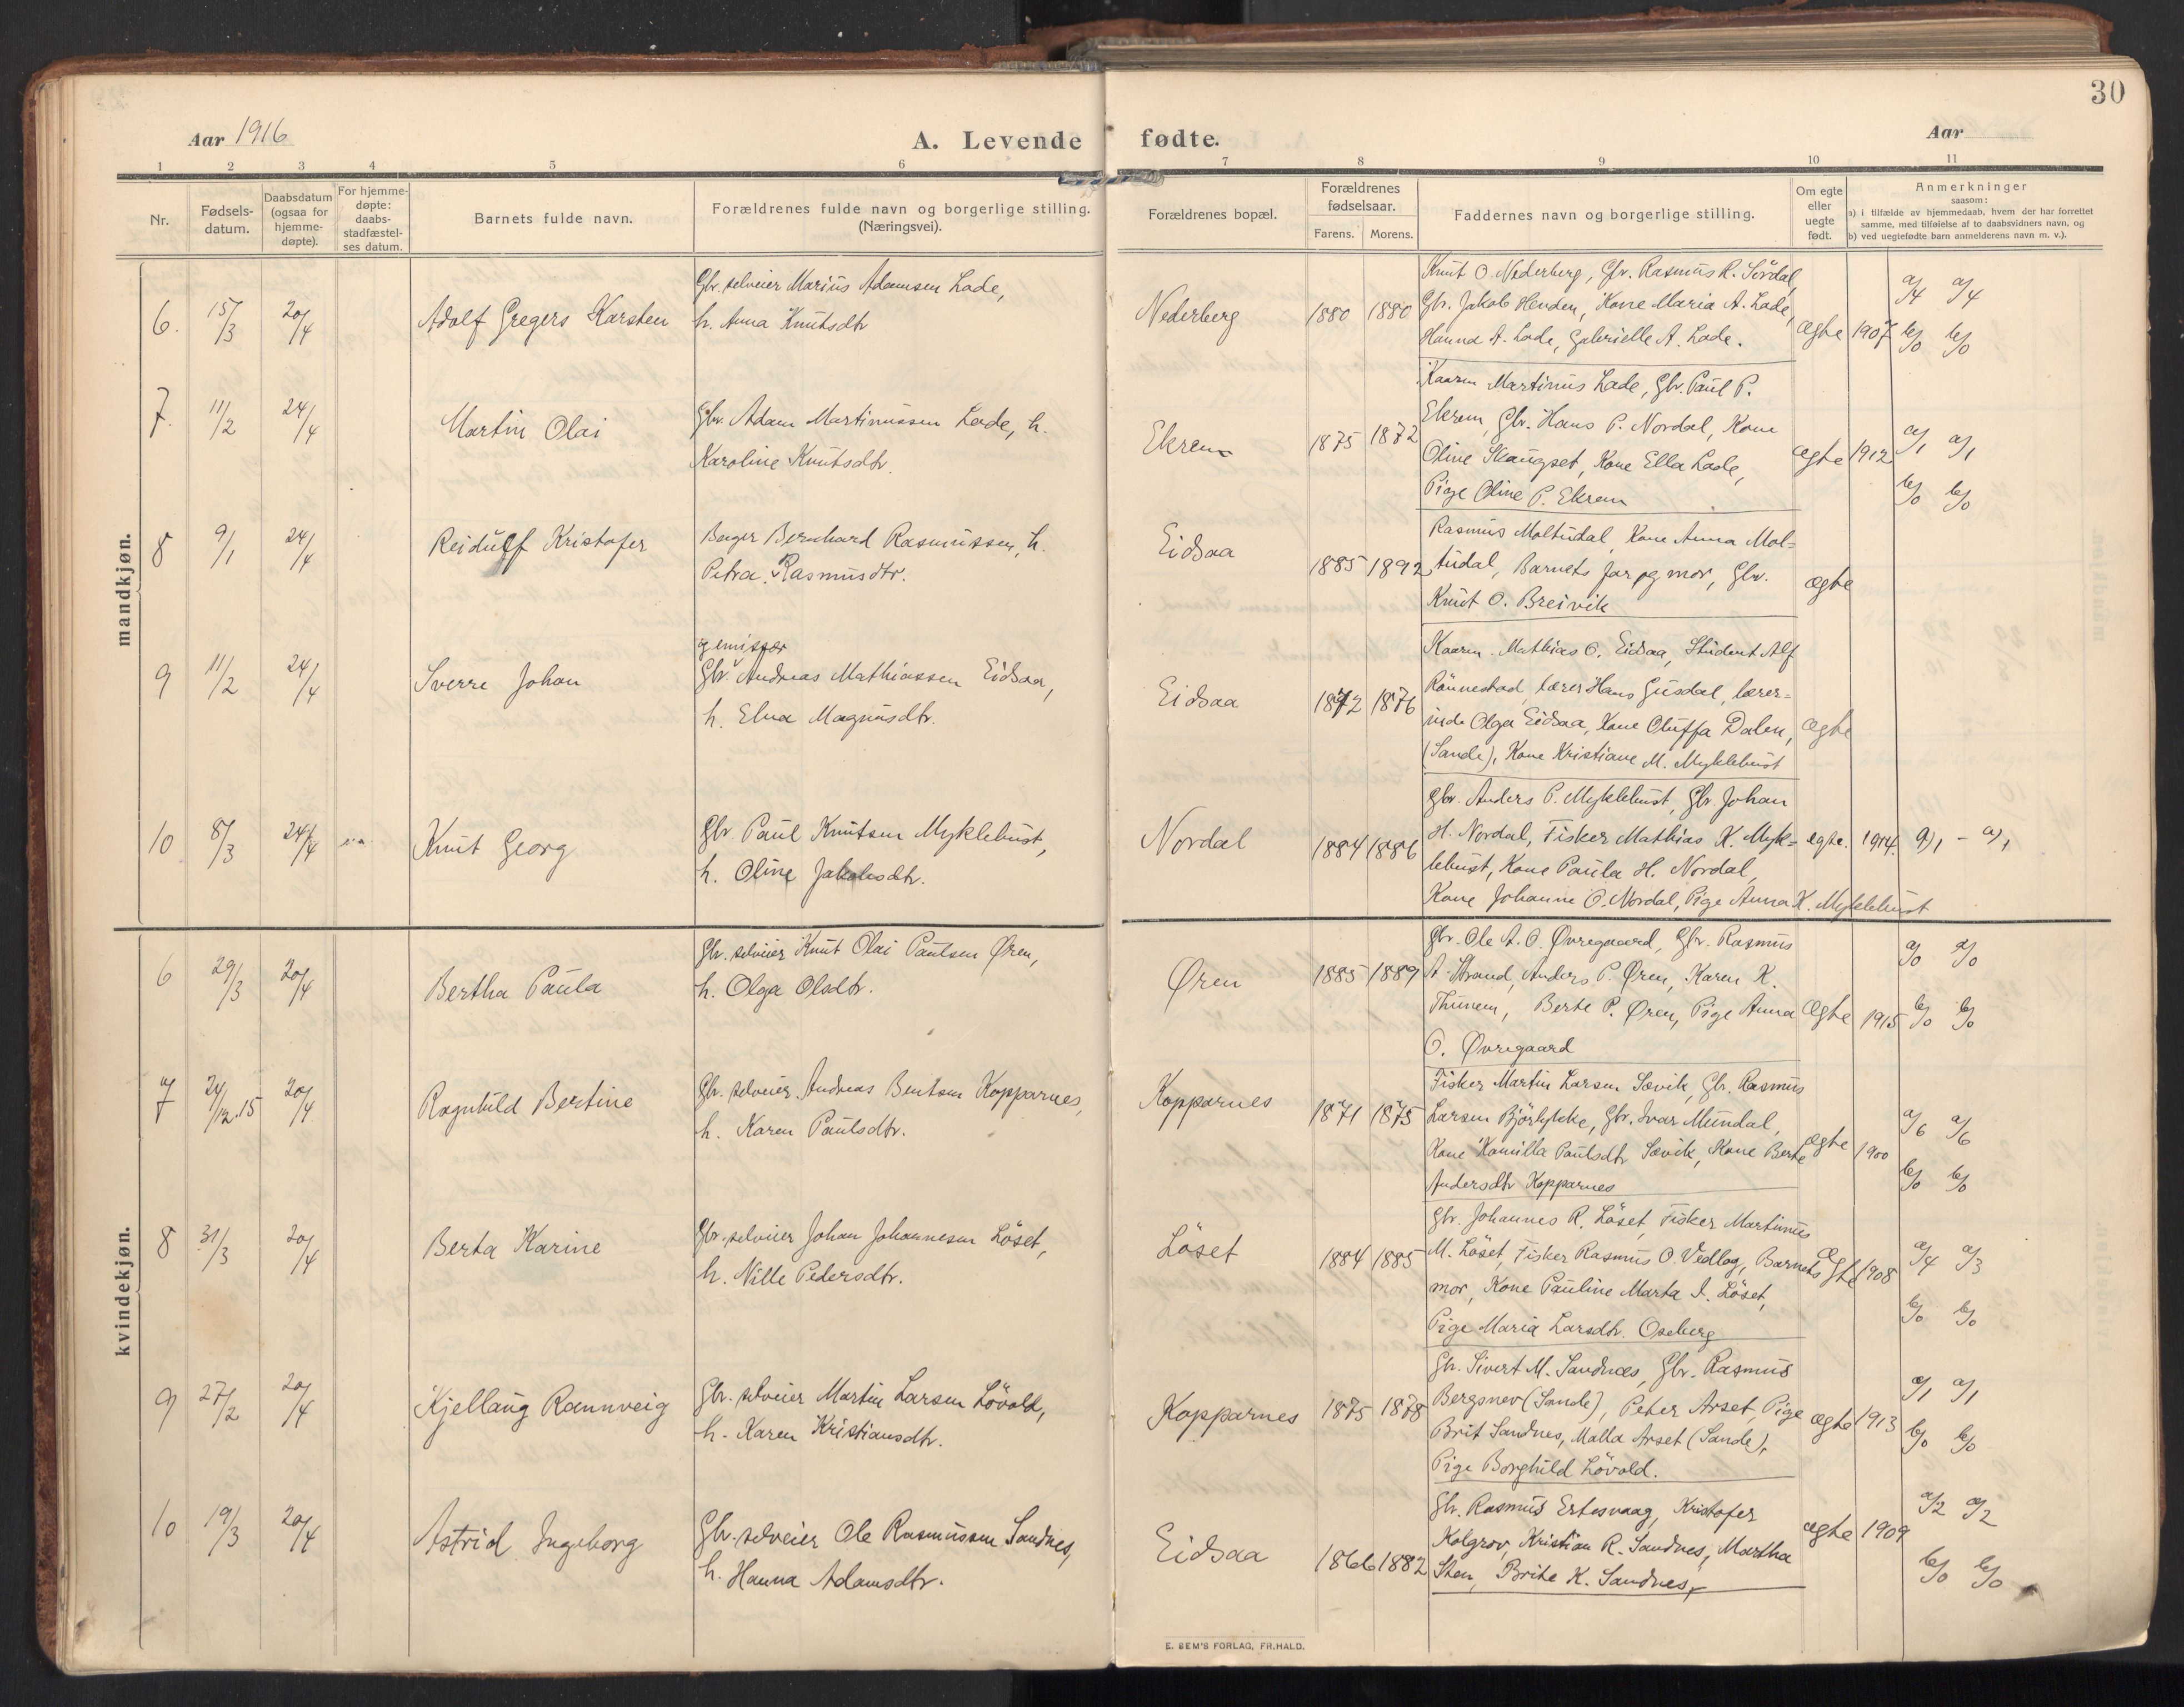 30
Aar 1916
A. Levende fødte.
Aar
1 2 3 4 5 6 7 8 9 10 11
Nr.
Fødsels-
datum.
Daabsdatum
(ogsaa for
hjemme-
døpte).
For hjemme-
døpte:
daabs-
stadfæstel-
ses datum.
Barnets fulde navn.
Forældrenes fulde navn og borgerlige stilling.
(Næringsvei).
Forældrenes bopæl.
Forældrenes
fødselsaar.
Farens. Morens.
Faddernes navn og borgerlige stilling.
Om egte
eller
uegte
født.
Anmerkninger
saasom:
a) i tilfælde av hjemmedaab, hvem der har forrettet
samme, med tilføielse af to daabsvidners navn, og
b) ved uegtefødte barn anmelderens navn m. v.).
mandkjøn.
6. 15/3 20/4 Adolf Gregers Karsten
Gbr. selveier Marius Adamsen Lade,
h. Anna Knutsdtr
Nederberg 1880 1880
Knut O. Nederberg, Gbr. Rasmus R. Sördal,
Gbr. Jakob Henden, Kone Maria A. Lade,
Hanna A. Lade, Gabrielle A. Lade.
ægte 1907 a/4 a/4
b/0 b/0
7. 11/2 24/4 Martin Olai
Gbr. Adam Martinussen Lade, h.
Karoline Knutsdtr.
Ekrem 1875 1872
Kaarm Martinus Lade, Gbr. Paul P.
Ekrem, Gbr. Hans P. Nordal, Kone
Oline Skaugset, Kone Ella Lade,
Pige Oline P. Ekrem
ægte 1912 a/1 a/1
b/0 b/0
8 9/1 24/4 Reidulf Kristofer
Bager Bernhard Rasmussen, h.
Petra Rasmusdtr.
Eidsaa 1885 1892
Rasmus Moltudal, Kone Anna Mol=
tudal, Barnets far og mor, Gbr.
Knut O. Breivik
ægte
9 11/2 24/4 Sverre Johan
Gbr. Andreas Mathiassen Eidsaa,
h. Elna Magnusdtr.
Eidsaa 1872 1876
Kaarm. Mathias O. Eidsaa, Student Alf
Rönnestad, lærer Hans Gusdal, lærer=
inde Olga Eidsaa, Kone Oluffa Dalen,
(Sande), Kone Kristiane M. Myklebust
ægte
10 8/3 24/4 Knut Georg
Gbr. Paul Knutsen Myklebust,
h. Oline Jakobsdtr.
Nordal 1884 1886
Gbr. Anders P. Myklebust, Gbr. Johan
H. Nordal, Fisker Mathias K. Myk=
lebust, Kone Paula H. Nordal,
Kone Johanne O. Nordal, Pige Anna K. Myklebust
egte. 1914. a/1 - a/1
kvindekjøn.
6 29/3 20/4 Bertha Paula
Gbr. selveier Knut Olai Paulsen Øren,
h. Olga Olsdtr.
Øren 1885 1889
Gbr. Ole A. O. Øvregaard, Gbr. Rasmus
A. Strand, Anders P. Øren, Karen K.
Thunem, Berte P. Øren, Pige Anna
O. Øvregaard
ægte 1915 a/0 a/0
b/0 b/0
7 24/12.15 20/4 Ragnhild Bertine
Gbr. selveier Andreas Bentsen Kopparnes,
h. Karen Paulsdtr.
Kopparnes 1871 1875
Fisker Martin Larsen Sævik, Gbr. Rasmus
Larsen Björlykke, Gbr. Ivar Mundal,
Kone Kamilla Paulsdtr Sævik, Kone Berte
Andersdtr Kopparnes
ægte 1900 a/6 a/6
b/0 b/0
8 31/3 20/4 Berta Karine
Gbr. selveier Johan Johannesen Löset,
h. Nille Pedersdtr.
Löset 1884 1885
Gbr. Johannes R. Löset, Fisker Martinus
M. Löset, Fisker Rasmus O. Vedlog, Barnets
mor, Kone Pauline Marta I. Löset,
Pige Maria Larsdtr. Oseberg
Ægte 1908 a/4 a/3
b/0 b/0
9 27/2 20/4 Kjellaug Rannveig
Gbr. selveier Martin Larsen Lövold,
h. Karen Kristiansdtr.
Kopparnes 1875 1878
Gbr. Sivert M. Sandnæs, Gbr. Rasmus
Bergsnev (Sande), Peter Arset, Pige
Brit Sandnes, Malla Arset (Sande),
Pige Borghild Lövold.
ægte 1913 a/1 a/1
b/0 b/0
10 19/3 20/4 Astrid Ingeborg
Gbr. selveier Ole Rasmussen Sandnes,
h. Hanna Adamsdtr.
Eidsaa 1866 1882
Gbr. Rasmus Ertesvaag, Kristofer
Kolgrov, Kristian R. Sandnes, Martha
Sten, Brite K. Sandnes,
ægte 1909 a/2 a/2
b/0 b/0
E. SEM'S FORLAG, FR.HALD.